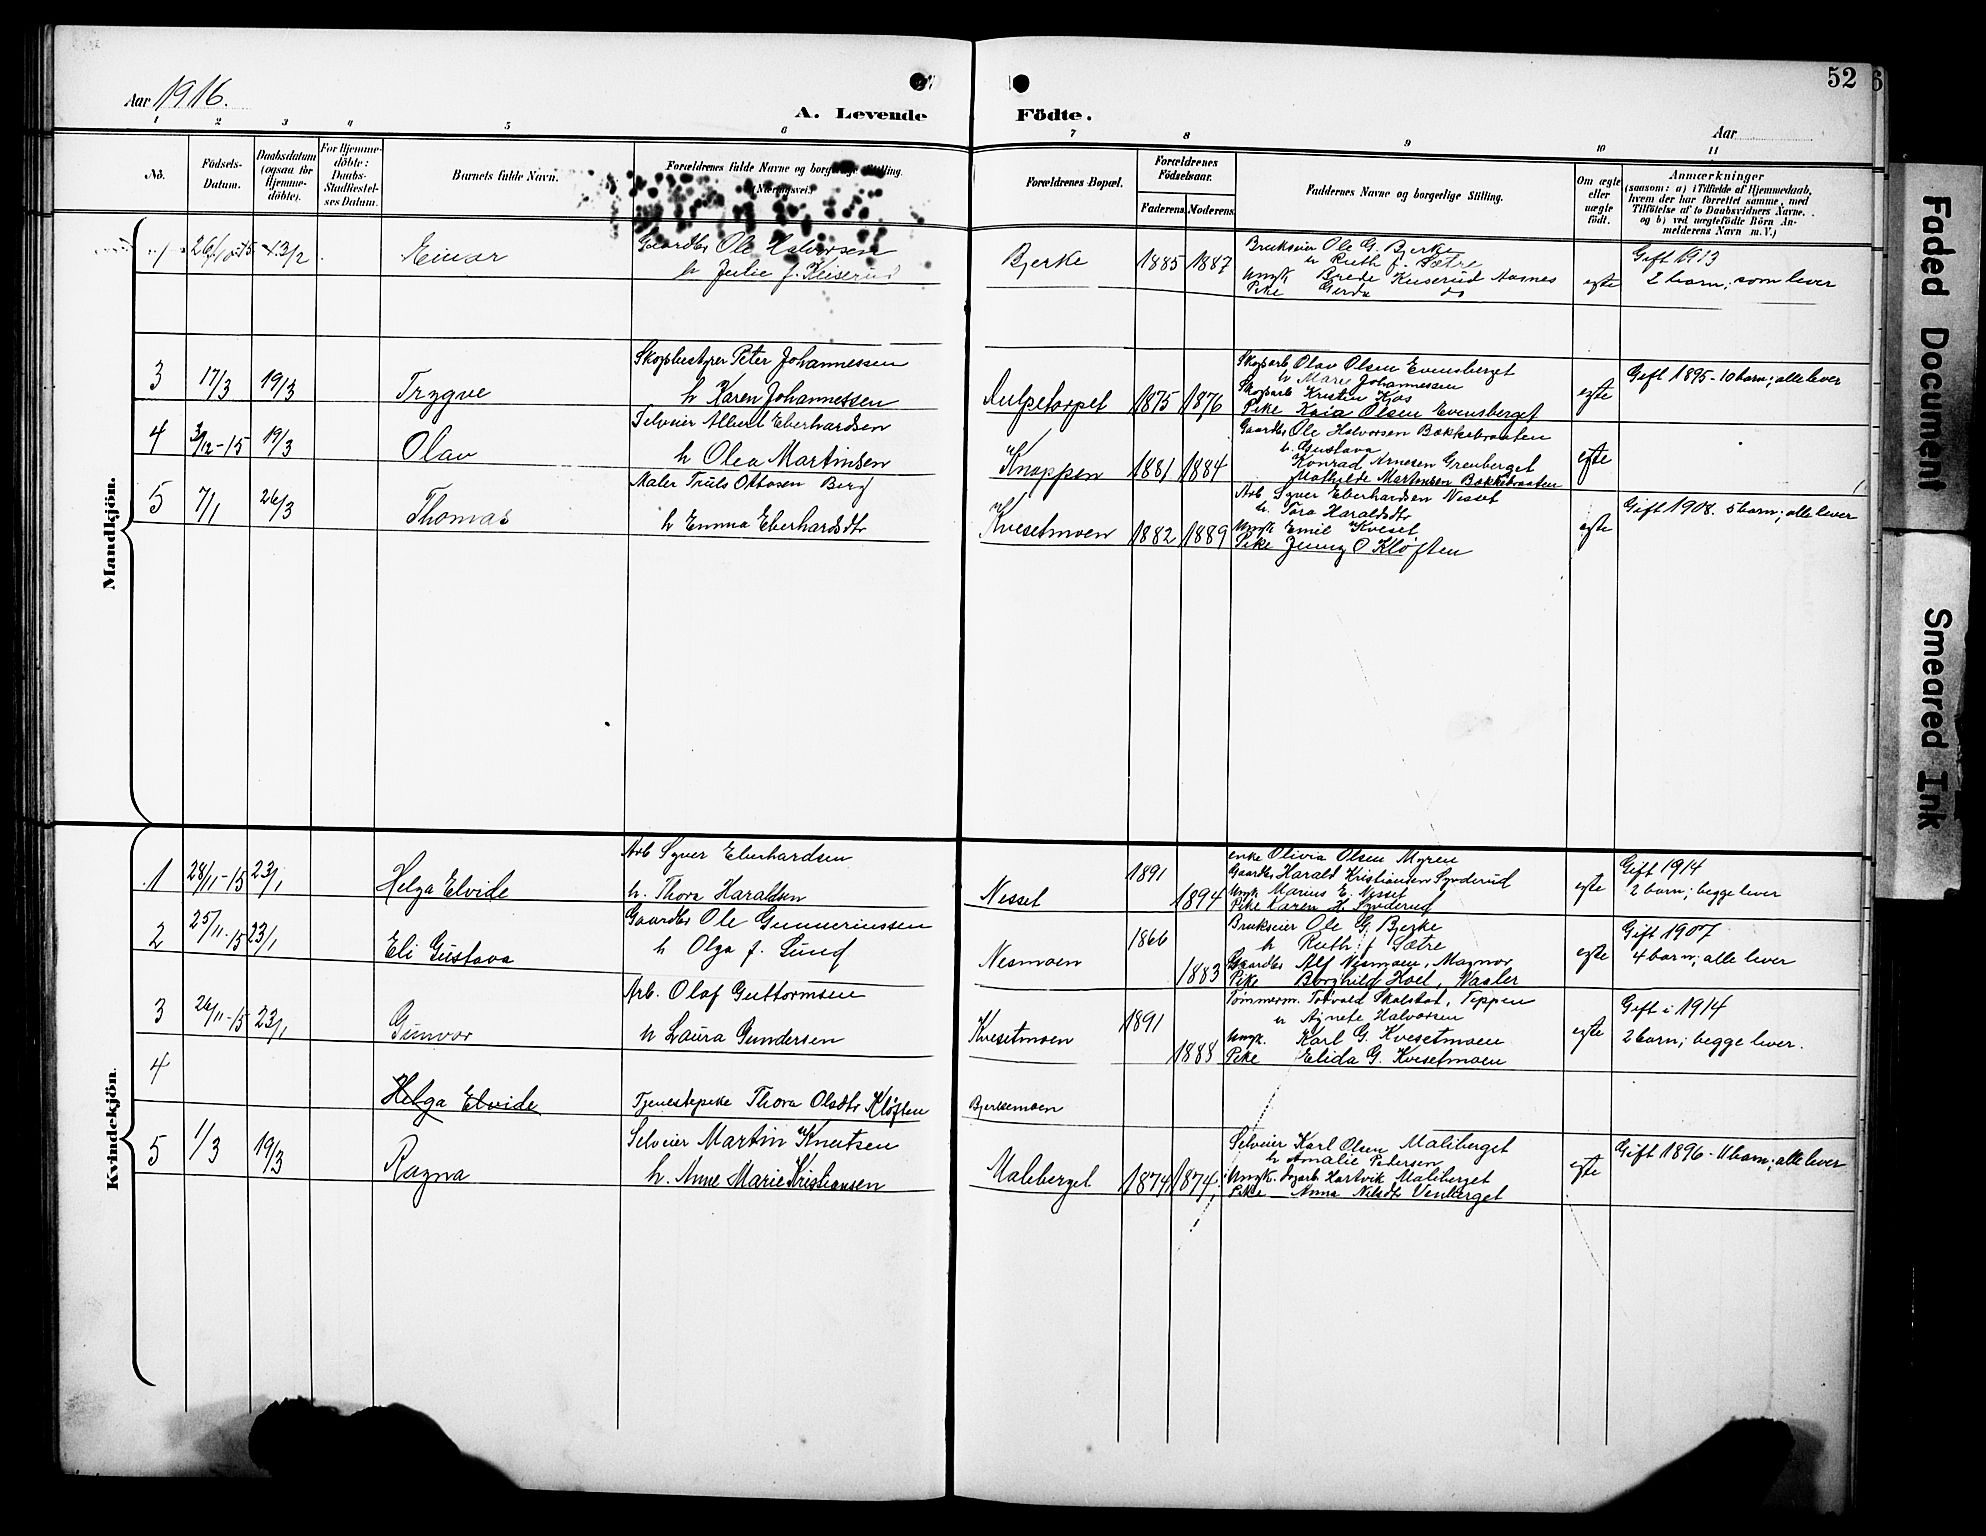 52
Aar 1916.
A. Levende Födte.
Aar
1 2 3 4 5 6 7 8 9 10 11
No.
Födsels-Datum.
Daabsdatum (ogsaa for Hjemme-döbte).
For Hjemme-döbte: Daabs-Stadfæstel-ses Datum.
Barnets fulde Navn.
Forældrenes fulde Navne og borgerlige Stilling. (Næringsvei.)
Forældrenes Bopæl.
Forældrenes Födselsaar.
Faderens. Moderens.
Faddernes Navne og borgerlige Stilling.
Om ægte eller uægte födt.
Anmærkninger
(saasom: a) i Tilfælde af Hjemmedaab,
hvem der har forrettet samme, med
Tilföielse af to Daabsvidners Navne,
og b) ved uægtefödte Börn An-
melderens Navn m. V.)
Mandkjön.
13/2 Einar
Gaardbr Ole Halvorsen
h Julie f. Keiserud
Bjerke 1885 1887
Brukseier Ole G. Bjerke
h Ruth f. Sætre
Ungk Brede Keiserud Aasnes
Pike Gerda do
egte
Gift 1913
2 barn; som lever
3 17/3 19/3 Trygve
Skogbestyrer Peter Johannessen
h Karen Johannessen
1875 1876
Skogarb Olav Olsen Evensberget
h Marie Johannessen
Skogarb Kristen Kjos
Pike Kaia Olsen Evensberget
egte
Gift 1895 - 10 barn; alle lever
4 3/12-15 19/3 Olav
Selveier Albert Eberhardsen
h Olea Martinsen
Knappen 1881 1884
Gaardbr Ole Halvorsen Bakkebraaten
h. Gustava
Konrad Arnesen Grenberget
Mathilde Martinsen Bakkebraaten
egte
5 7/1 26/3 Thomas
Maler Truls Ottosen Berg
h Emma Eberhardsdtr
Kvesetmoen 1882 1889
Arb Syver Eberhardsen Nesset
h. Tora Haraldsdtr
Ungk Emil Kveset
Pike Jenny O Kløften
egte
Gift 1908. 5 barn; alle lever
Kvindekjön.
1 28/11-15 23/1 Helga Elvide
Arb Syver Eberhardsen
h. Thora Haraldsen
Nesset 1891 1894
enke Olivia Olsen Myren
Gaardbr Harald Kristiansen Synderud
Ungk Marius E. Nesset
Pike Karen H Synderud
egte
Gift 1914
2 barn; begge lever
2 25/11-15 23/1 Eli Gustava
Gaardbr Ole Gunneriussen
h Olga f. Lund
Nesmoen 1866 1883
Brukseier Ole G Bjerke
h Ruth f Sætre
Gaardbr Alf Nesmoen, Magnor
Pike Borghild Hoel, Waaler
egte
Gift 1907
4 barn; alle lever
3 26/11-15 23/1 Gunvor
Arb. Olaf Guttormsen
h Laura Gundersen
Kvesetmoen 1891 1888
Tømmerm. Torvald Skalstad, Teppen
h Agnete Halvorsen
Ungk. Karl G. Kvesetmoen
Pike Elida G. Kvesetmoen
egte
Gift i 1914
2 barn; begge lever.
4 Helga Elvide
Tjenestepike Thora Olsdtr Kløften
Bjerkemoen
5 1/3 19/3 Ragna
Selveier Martin Knutsen
h. Anne Marie Kristiansen
Maliberget 1874 1874
Selveier Karl Olsen Maliberget
h Amalie Petersen
Ungk. Hartvik Maliberget
Pike Anna Nilsdtr Venberget
egte
Gift 1896 - 11 barn; alle lever
Faded Document
Smeared Ink